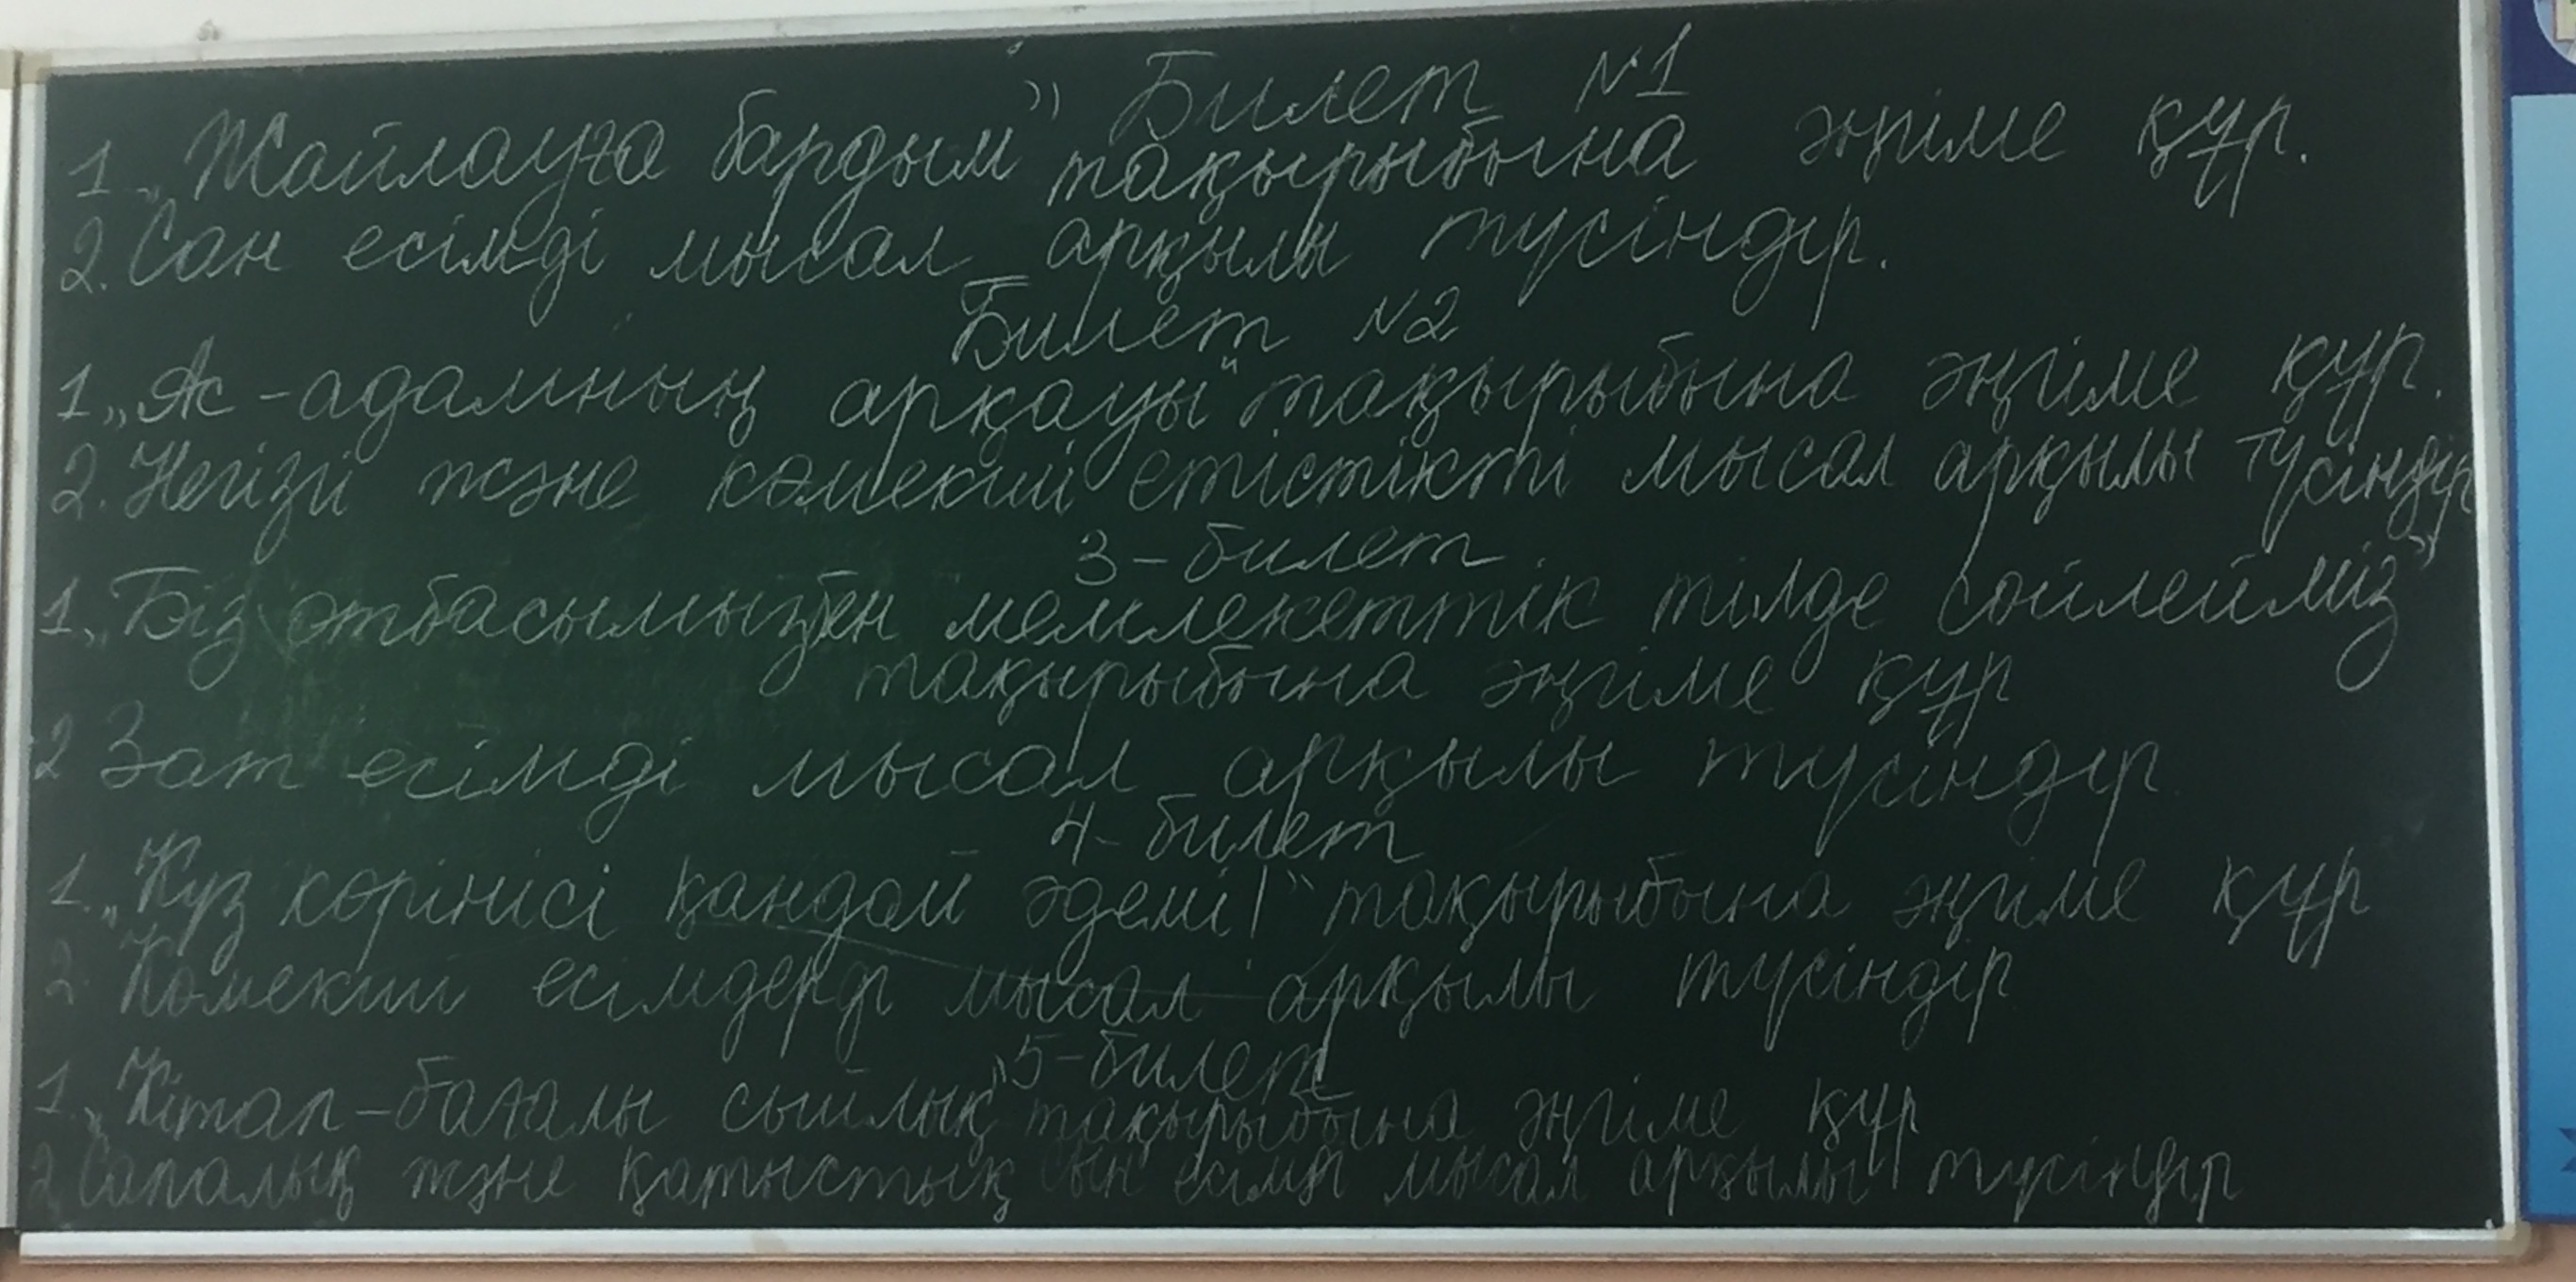 Билет №1
1. „Жайлауға бардым" тақырыбына әңгіме құр.
2. Сан есімді мысал арқылы түсіндір.
Билет №2
1. „Ас - адамның арқауы" тақырыбына әңгіме құр.
2. Негізгі және көмекші етістікті мысал арқылы түсіндір
3 - билет
1. „Біз отбасымызбен мемлекеттік тілде сөйлейміз"
тақырыбына әңгіме құр
2 Зат есімді мысал арқылы түсіндір
4 - билет
1. „Күз көрінісі қандай әдемі!" тақырыбына әңгіме құр
2. Көмекші есімдерді мысал арқылы түсіндір
5 - билет
1. „Кітап - бағалы сыйлық" тақырыбына әңгіме құр
2 Сапалық және қатыстық сын есімді мысал арқылы түсіндір